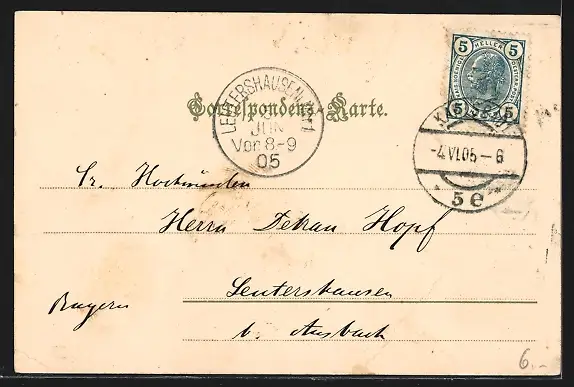 5 HELLER 5
5 5
LEUTERSHAUSEN
JUN
Vor. 8-9
05
Correspondenz-Karte.
-4 VI 05-6
* 5e *
Sr. Hochwürden
Herrn Dekan Hopf
Leutershausen
Bayern
b. Ansbach
6.-